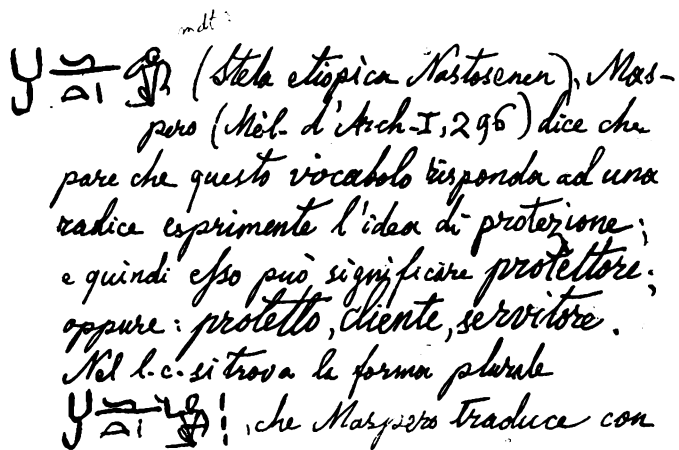 mdt
(Stela etiopica Nastosenen), Mas-
pero (Mél. d'Arch-I, 296) dice che
pare che questo vocabolo risponda ad una
radice esprimente l'idea di protezione;
e quindi esso può significare protettore;
oppure: protetto, cliente, servitore.
Nel l.c. si trova la forma plurale
, che Maspero traduce con